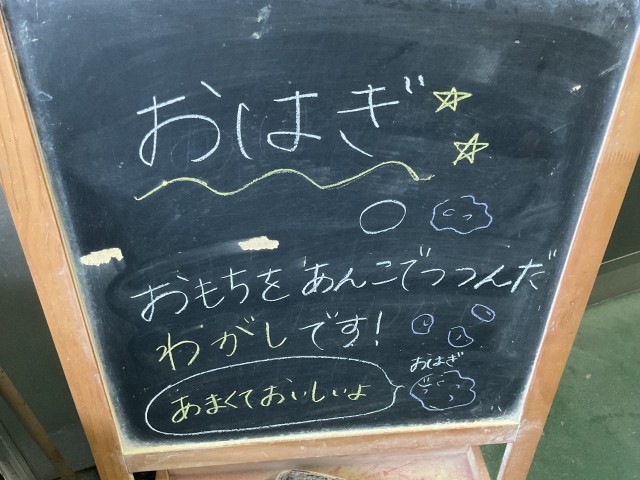 おはぎ
おもちをあんこでつつんだ
わがしです!
おはぎ
あまくておいしいよ